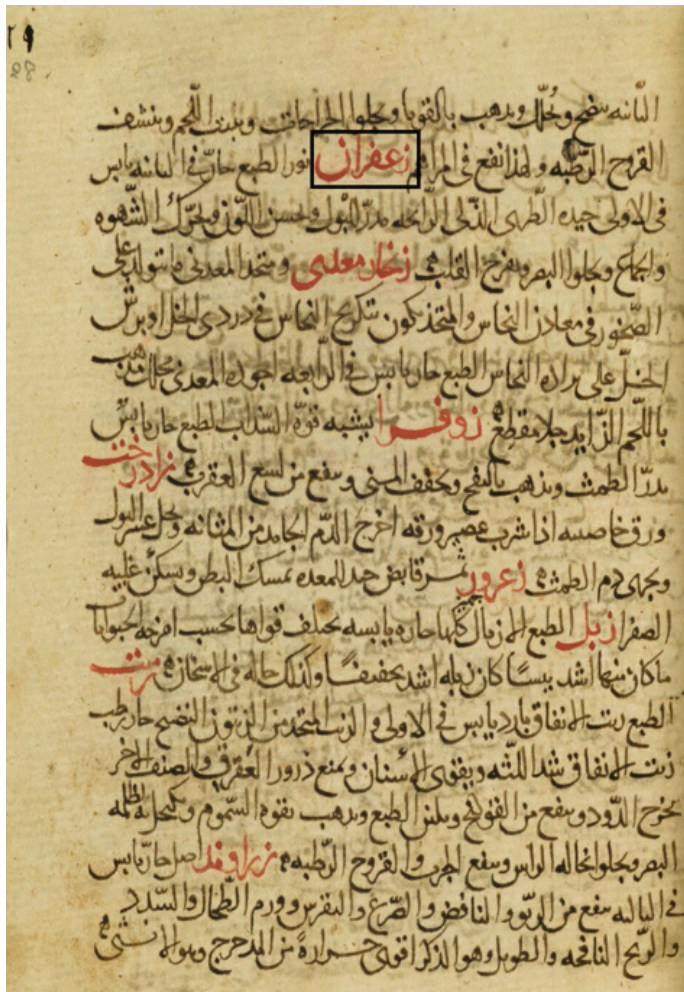 ٢٩
28
الثانيه ينضج ويحلل ويذهب بالقوبا ويجلوا الجراحات وينبت اللحم وينشف
القروح الرطبه ولهذا نفع فى المراهم زعفران نور الطبع حار فى الثانيه يابس
فى الاولى جيده الطرى الذكى الرائحه مدر البول ويحسن اللون ويحرك الشهوه
والجماع ويجلوا البصر ويفرح القلب زنجار معدنى ومتخذ المعدنى ما يتولد على
الصخور فى معادن النحاس والمتخذ يكون بتكريج النحاس فى دردى الخل او برش
الخل على براده النحاس الطبع حار يابس فى الرابعه اجوده المعدنى محلل مذهب
باللحم الزايد جلا مقطع زوفرا يشبه قوه السذاب الطبع حار يابس
يدر الطمث ويذهب بالنفخ ويجفف المنى وينفع من لسع العقرب زادرخت
ورق خاصيته اذا شرب عصير ورقه اخرج الدم الجامد من المثانه وحل عسر البول
ويجرى دم الطمث زعرور ثمر قابض جيد المعده يمسك البطن ويسكن غلبه
الصفرا زبل الطبع الازبال كلها حاره يابسه يختلف قواها بحسب امزجه الحيوانات
ما كان منها اشد يبسًا كان زبله اشد تجفيفًا وكذلك حاله فى الاسخان زيت
الطبع زيت الانفاق بارد يابس فى الاولى والزيت المتخذ من الزيتون النضيج حار رطب
زيت الانفاق يشد اللثه ويقوى الاسنان ويمنع درور العرق والصنف الاخر
يخرج الدود وينفع من القولنج ويلين الطبع ويذهب بقوه السموم ويكتحل به لظلمه
البصر ويجلوا نخاله الراس وينفع الجرب والقروح الرطبه زراوند اصل حار يابس
فى الثالثه ينفع من الربو والنافض والصرع والنقرس وورم الطحال والسدد
والريح النافخه والطويل وهو الذكر اقوى حرارةً من المدحرج وهو الانثى